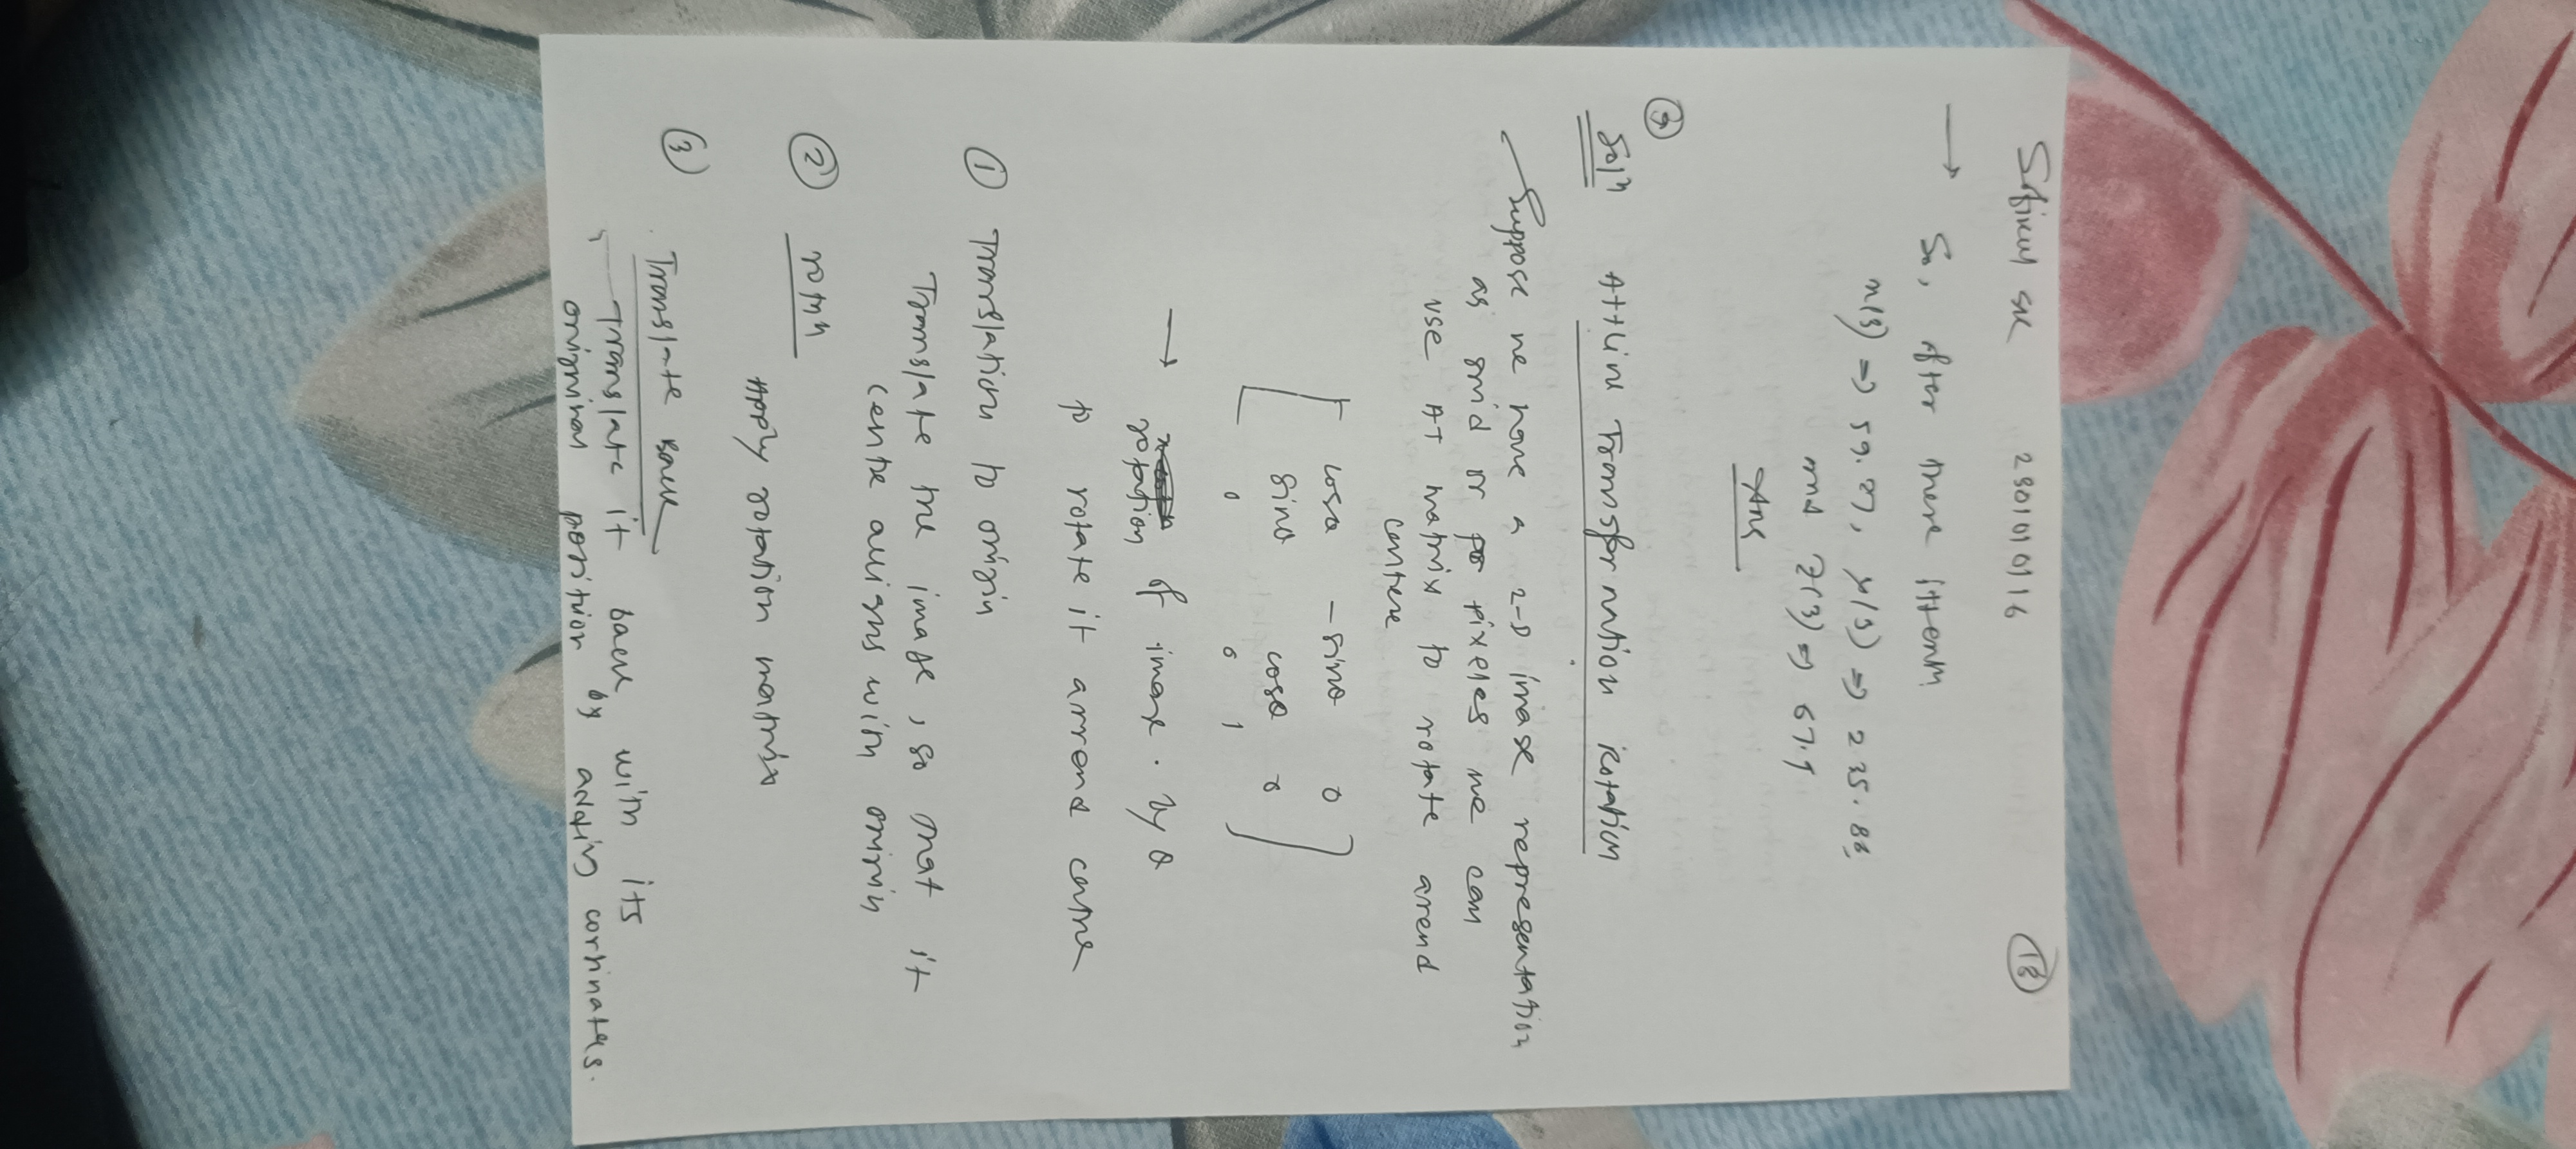 230101016 18
→ So, after these iteration
x(3) ⇒ 59.27, y(3) ⇒ 235.88
and z(3) ⇒ 67.9
Ans
Soln Affine Transformation rotation
Suppose we have a 2-D image representation
as grid or pixeles we can
use AT matrix to rotate arend
centere
[ cosθ -sinθ 0
sinθ cosθ 0
0 0 1 ]
→ rotation of image. By θ
to rotate it arrond centre
① Translation to origin
Translate the image, so that it
centre aligns with origin
② rotn
Apply rotation matrix
③ Translate back
Translate it back with its
position by adding cortinates.